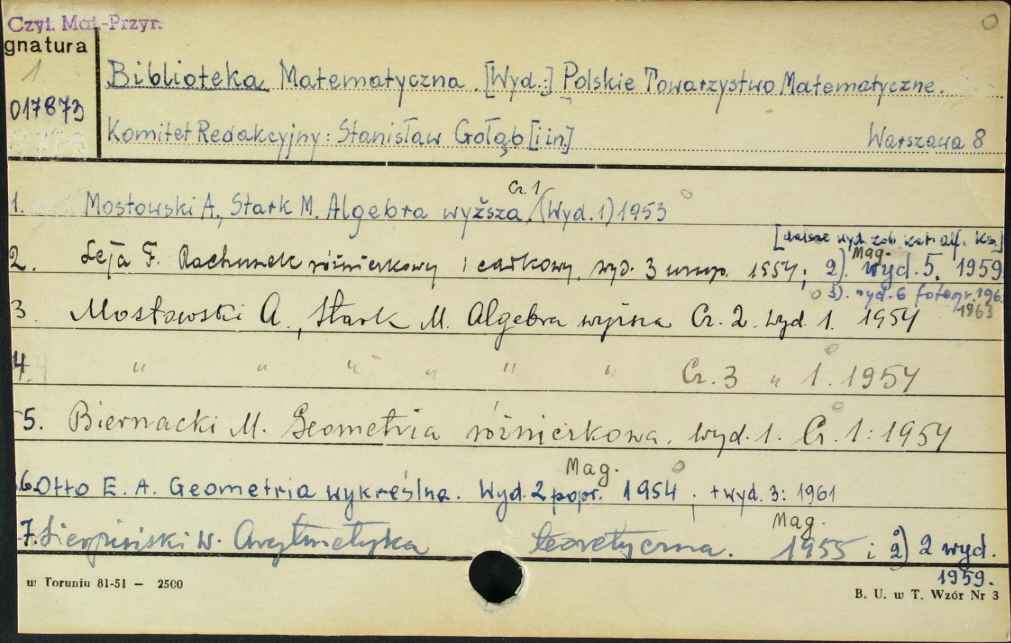 Czyt. Mat.-Przyr.
gnatura
1
017873
Biblioteka Matematyczna. [Wyd.:] Polskie Towarzystwo Matematyczne.
Komitet Redakcyjny: Stanisław Gołąb [i in] Warszawa 8
Cz. 1
1. Mostowski A., Stark M. Algebra wyższa, (Wyd. 1) 1953
[dalsze wyd. zob. kat. alf. ks.]
Mag.
2. Leja F. Rachunek różniczkowy i całkowy, wyd. 3 1954; 2) wyd. 5. 1959
3). wyd. 6 fotogr. 196
1963
3. Mostowski A., Stark M. Algebra wyższa Cz. 2. wyd 1. 1954
4. " " " " " " Cz. 3 " 1. 1954
5. Biernacki M. Geometria różniczkowa. Wyd. 1. Cz. 1: 1954
Mag.
6. Otto E. A. Geometria wykreślna. Wyd. 2 popr. 1954. ; + wyd. 3: 1961
Mag.
7. Sierpiński W. Arytmetyka teoretyczna. 1955 i 2) 2 wyd.
1959.
w Toruniu 81-51 — 2500
B. U. w T. Wzór Nr 3